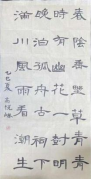 春陰垂野草青青
時有幽花一樹明
晚泊孤舟古祠下
滿川風雨看潮生
乙巳夏